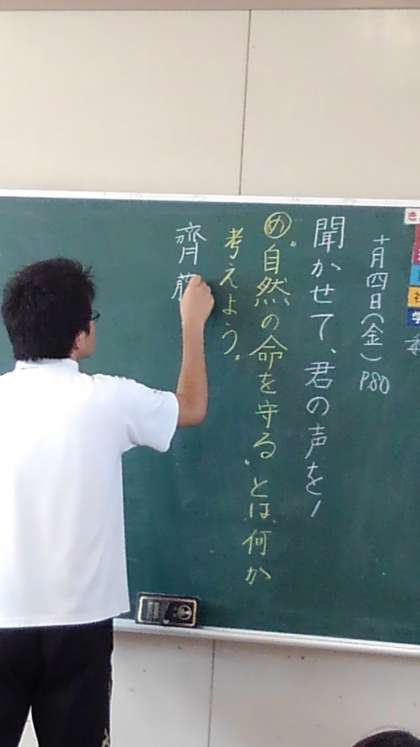 十月四日(金) P80
聞かせて、君の声を!
め “自然の命を守る”とは、何か
考えよう。
齊藤
学